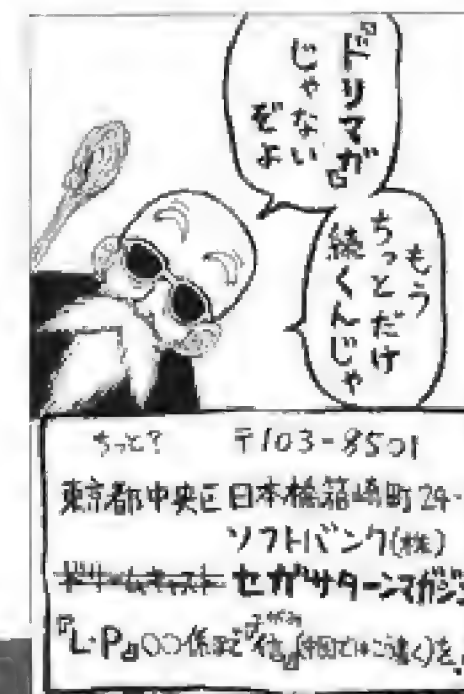 『ドリマガ』
じゃない
ぞよ
もう
ちっとだけ
続くんじゃ
ちっと?
〒103-8501
東京都中央区日本橋箱崎町24-
ソフトバンク(株)
ドリームキャスト セガサターンマガジン
『L・P』○○係まで『信』(中国ではこう書く)を